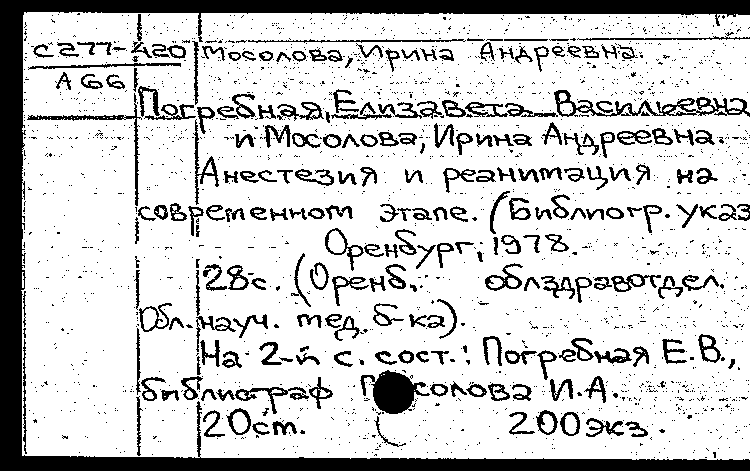 С277-420 Мосолова, Ирина Андреевна.
А66
Погребная, Елизавета Васильевна
и Мосолова, Ирина Андреевна.
Анестезия и реанимация на
современном этапе. (Библиогр. указ
Оренбург, 1978.
28с. (Оренб. облздравотдел.
Обл. науч. мед. б-ка).
На 2-й с. сост.: Погребная Е.В.,
библиограф И.А.
20см. 200экз.